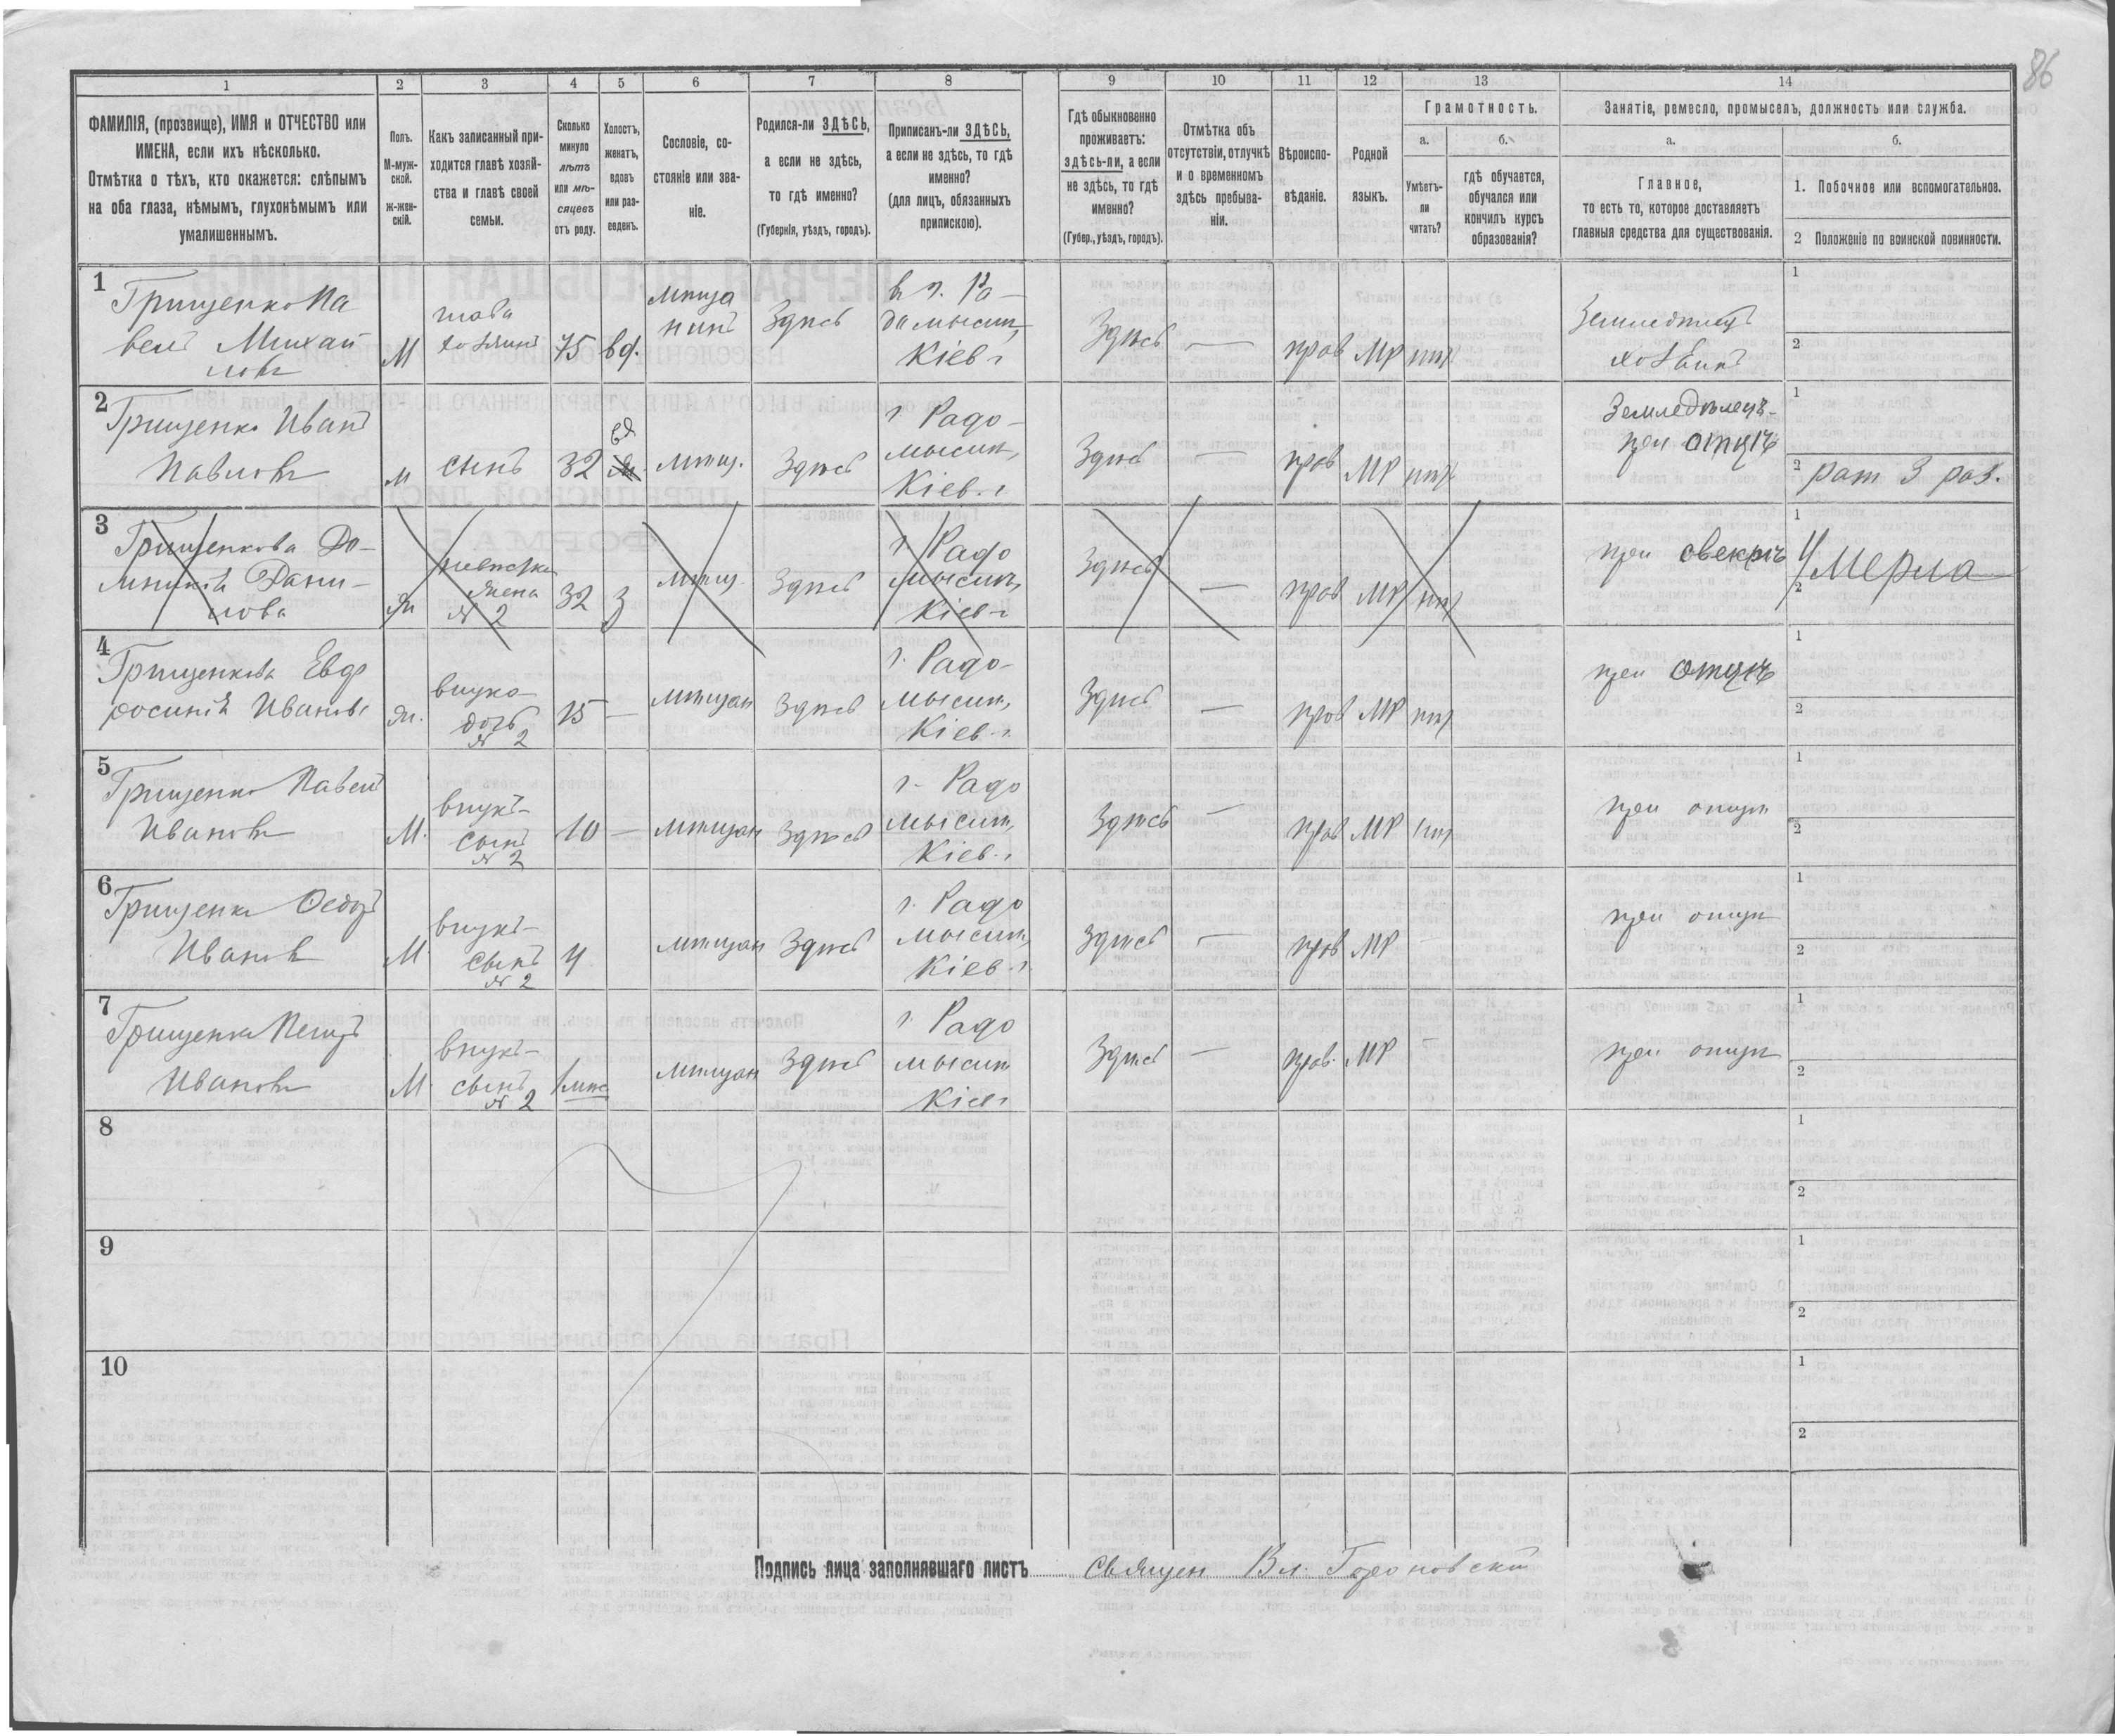 86
1 2 3 4 5 6 7 8 9 10 11 12 13 14
ФАМИЛІЯ, (прозвище), ИМЯ и ОТЧЕСТВО или
ИМЕНА, если ихъ нѣсколько.
Отмѣтка о тѣхъ, кто окажется: слѣпымъ
на оба глаза, нѣмымъ, глухонѣмымъ или
умалишеннымъ.
Полъ.
М-муж-
ской.
ж-жен-
скій.
Какъ записанный при-
ходится главѣ хозяй-
ства и главѣ своей
семьи.
Сколько
минуло
лѣтъ
или мѣ-
сяцевъ
отъ роду.
Холостъ,
женатъ,
вдовъ
или раз-
веденъ.
Сословіе, со-
стояніе или зва-
ніе.
Родился-ли ЗДѢСЬ,
а если не здѣсь,
то гдѣ именно?
(Губернія, уѣздъ, городъ).
Приписанъ-ли ЗДѢСЬ,
а если не здѣсь, то гдѣ
именно?
(для лицъ, обязанныхъ
припискою).
Гдѣ обыкновенно
проживаетъ:
здѣсь-ли, а если
не здѣсь, то гдѣ
именно?
(Губер., уѣздъ, городъ).
Отмѣтка объ
отсутствіи, отлучкѣ
и о временномъ
здѣсь пребыва-
ніи.
Вѣроиспо-
вѣданіе.
Родной
языкъ.
Грамотность.
а.
Умѣетъ-
ли
читать?
б.
гдѣ обучается,
обучался или
кончилъ курсъ
образованія?
Занятіе, ремесло, промыселъ, должность или служба.
а.
Главное,
то есть то, которое доставляетъ
главныя средства для существованія.
б.
1. Побочное или вспомогательное.
2 Положеніе по воинской повинности.
1
Грищенко Па
велъ Михай
ловъ
М
глава
хозяинъ
75
вд.
мѣща
нинъ
Здѣсь
в г. Ра-
домысли,
Кіев г
Здѣсь
—
прав
МР
нѣт
Земледѣлецъ
хозяинъ
1
2
2
Грищенко Иванъ
Павловъ
м
сынъ
32
вд
ж.
мѣщ.
Здѣсь
г. Радо-
мысли,
Кіев. г
Здѣсь
—
прав
МР
нѣт
Земледѣлецъ
при отцѣ
1
2 рат 3 раз.
3
Грищенкова До-
мникія Дани-
лова
ж
невѣстка
жена
№ 2
32
З
мѣщ.
Здѣсь
г. Радо
мысли,
Кіев г
Здѣсь
—
прав
МР
нѣт
при свекрѣ
1
Умерла
2
4
Грищенкова Евдо
росинія Иванов
ж.
внука
дочь
№ 2
15
—
мѣщан
Здѣсь
г. Радо-
мысли,
Кіев. г
Здѣсь
—
прав
МР
нѣт
при отцѣ
1
2
5
Грищенко Павелъ
Ивановъ
М.
внукъ-
сынъ
№ 2
10
—
мѣщан
Здѣсь
г. Радо
мысли,
Кіев. г
Здѣсь
—
прав
МР
нѣт
при отцѣ
1
2
6
Грищенко Ѳедоръ
Ивановъ
М
внукъ-
сынъ
№ 2
4
мѣщан
Здѣсь
г. Радо
мысли,
Кіев. г.
Здѣсь
—
прав
МР
—
при отцѣ
1
2
7
Грищенко Петръ
Ивановъ
М.
внукъ-
сынъ
№ 2
1 мѣс
мѣщан
Здѣсь
г. Радо
мысли
Кіев г
Здѣсь
—
прав.
МР
—
при отцѣ
1
2
8
1
2
9
1
2
10
1
2
Подпись лица заполнявшаго листъ Священ Вл.